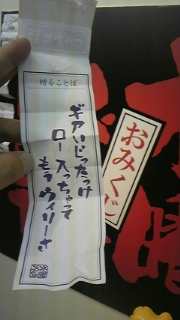 贈ることば
ギアいじったっけ
ロー入っちゃって
もうウィリーさ
おみくじ